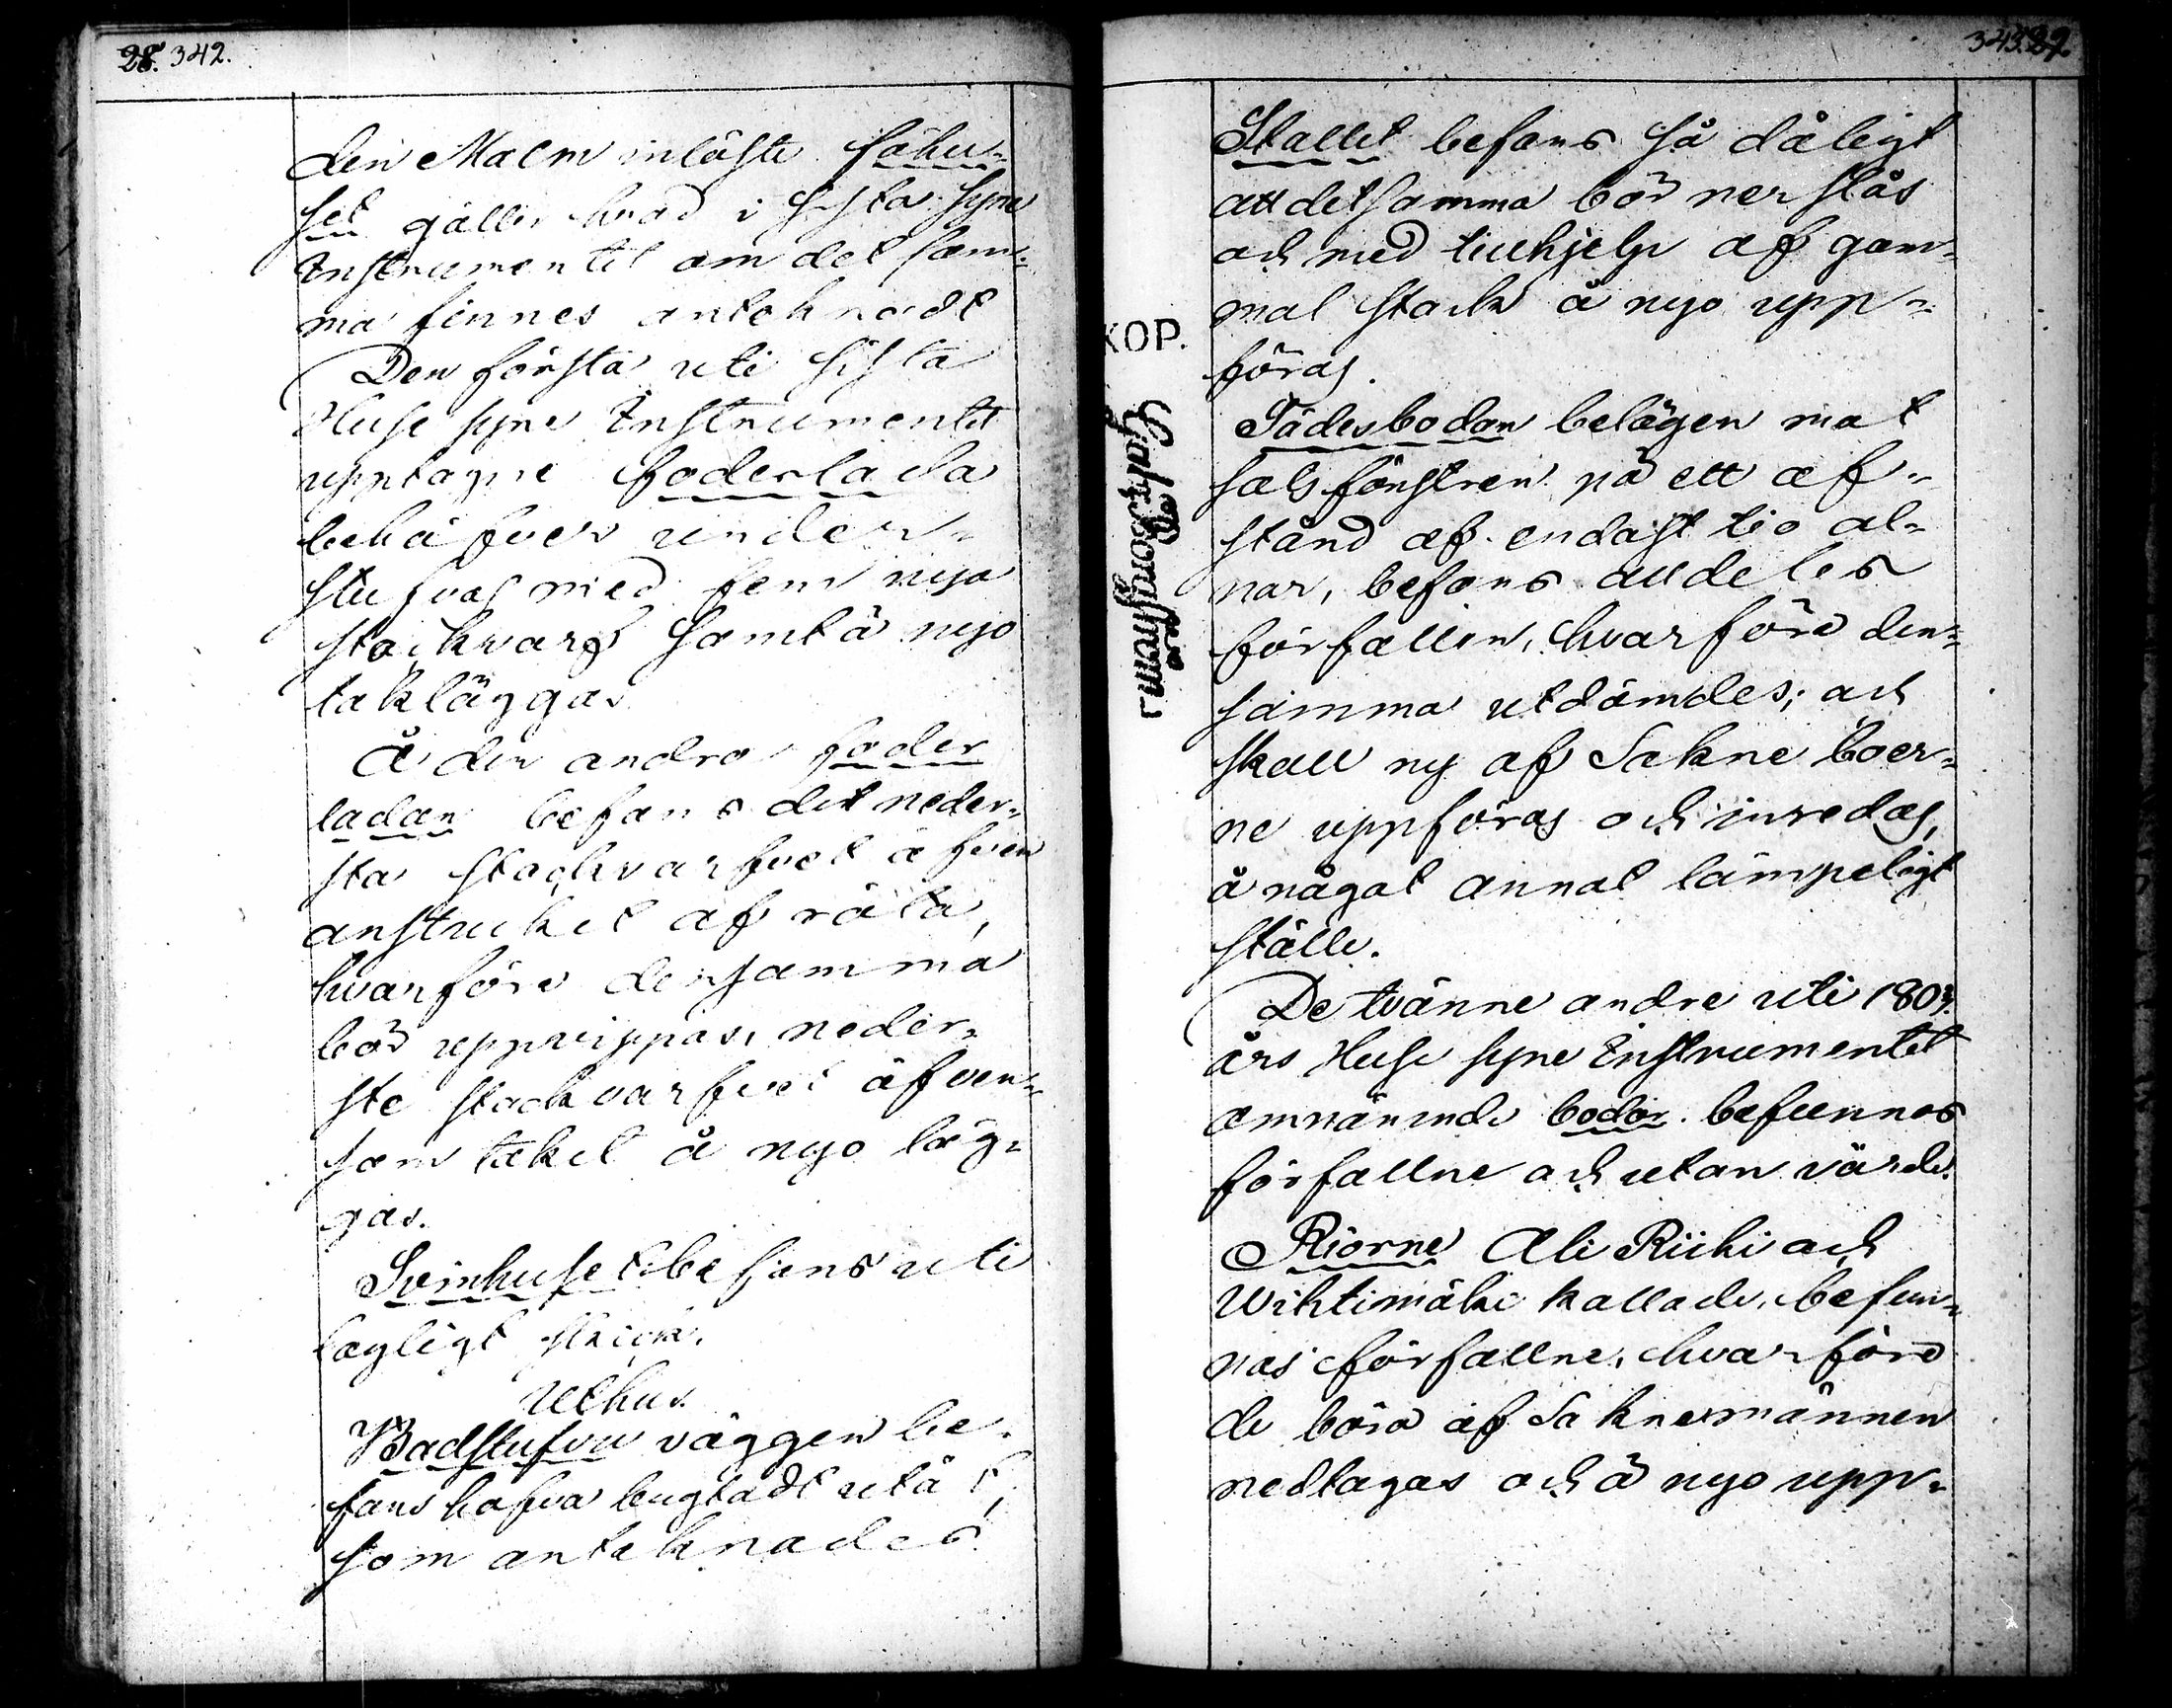 28. 342.
den Malm inlöste fähu-
set gäller hvad i sista syne
Instrumentet om det sam-
ma finnes anteknadt
Den första uti sista
Huse syne Instrumentet
upptagne foderlada
behöfver under-
stufvas med fem nya
stockvarf samt å nyo
takläggas
Å den andra foder
ladan befans det neder-
sta stockvarfvet äfven
anstuket af röta,
hvarföre densamma
bör uppvippas, neder-
ste stockvarfvet äfven-
som taket å nyo läg-
gas.
Svinhuset befans uti
lagligt skick.
Uthus.
Badstufvu väggen be-
fans hafva bugtadt utåt,
som anteknades
343. 29.
Stallet befans så dåligt
att detsamma bör nerslås
och med tillhjelp af gam-
mal stock å nyo upp-
föras.
Sädesbodan belägen mot
salsfönstren på ett af-
stånd af endast tio al-
nar, befans alldeles
förfallen, hvarföre den-
samma utdömdes; och
skall ny af Sokne boer-
ne uppföras och inredas,
å något annat lämpeligt
ställe.
De tvänne andre uti 1803
års Huse syne Instrumentet
omnämnde bodor befunnos
förfallne och utan värde.
Riorne Ali Riihi och
Wihtimäki kallade, befun-
nos förfallne, hvarföre
de böra af Soknemännen
nedtagas och å nyo upp-
KOP.